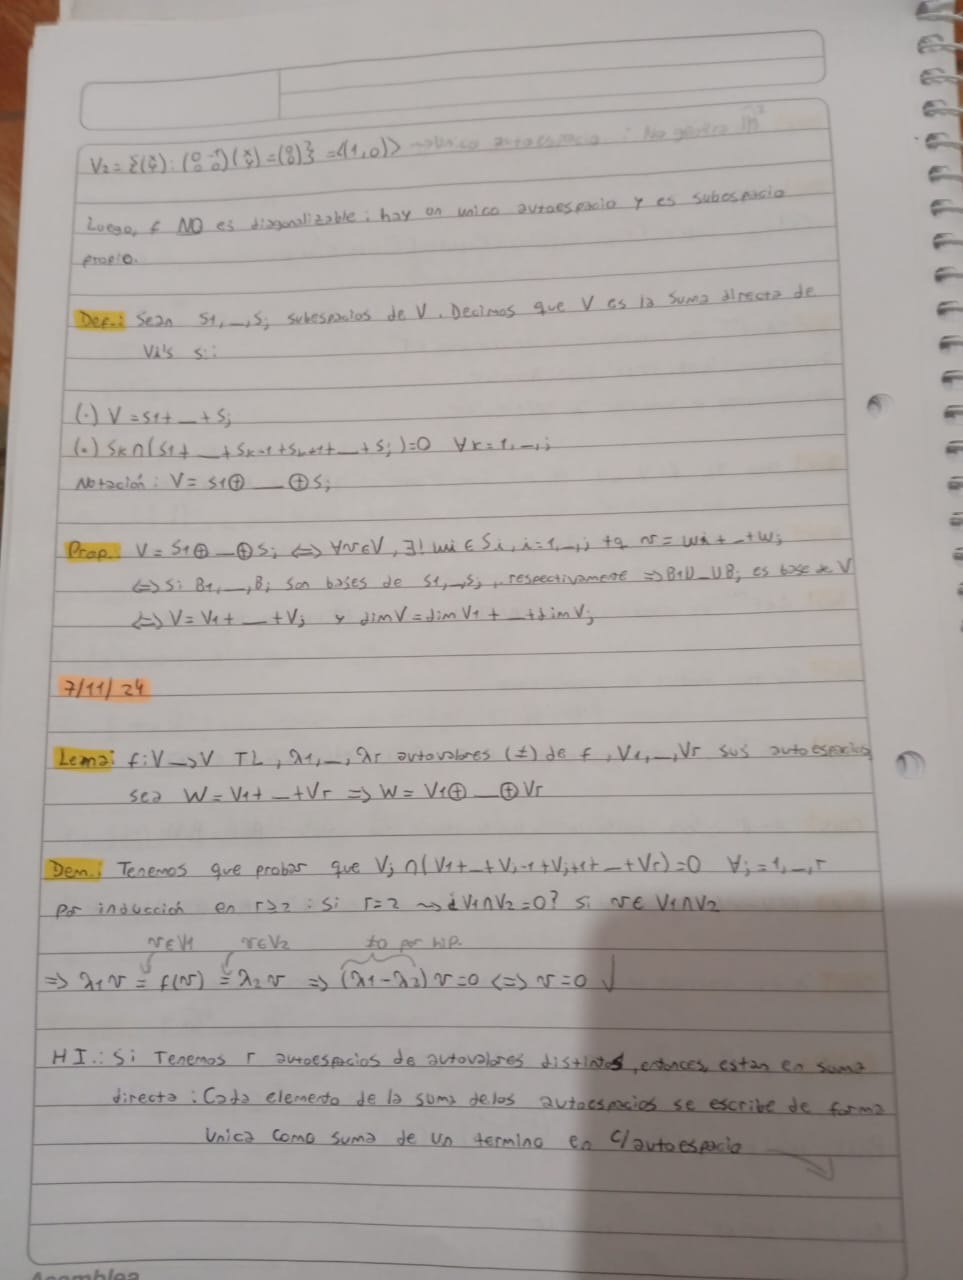 V₂ = {(x y) : (0 -1 0 0)(x y) = (0 0)} = <(1,0)> → único autoespacio : No genera ℝ²
Luego, f NO es diagonalizable : hay un unico autoespacio y es subespacio
propio.
Def.: Sean S1, _, Sj subespacios de V. Decimos que V es la suma directa de
Vi's si:
(·) V = S1 + _ + Sj
(·) Sk ∩ (S1 + _ + Sk-1 + Sk+1 + _ + Sj) = 0 ∀k = 1, _, j
Notación : V = S1 ⊕ _ ⊕ Sj
Prop. V = S1 ⊕ _ ⊕ Sj ⟺ ∀v ∈ V, ∃! wi ∈ Si, i = 1, _, j tq v = wi + _ + wj
⟺ Si B1, _, Bj son bases de S1, _, Sj, respectivamente ⇒ B1 ∪ _ ∪ Bj es base de V
⟺ V = V1 + _ + Vj y dim V = dim V1 + _ + dim Vj
7/11/24
Lema: f: V → V TL, λ1, _, λr autovalores (≠) de f, V1, _, Vr sus autoespacios
sea W = V1 + _ + Vr ⇒ W = V1 ⊕ _ ⊕ Vr
Dem.: Tenemos que probar que Vj ∩ (V1 + _ + Vj-1 + Vj+1 + _ + Vr) = 0 ∀j = 1, _, r
por inducción en r ≥ 2 : Si r = 2 ⇝ ¿V1 ∩ V2 = 0? Si v ∈ V1 ∩ V2
v ∈ V1 v ∈ V2 ≠0 por hip.
⇒ λ1 v = f(v) = λ2 v ⇒ (λ1 - λ2) v = 0 ⟺ v = 0 ✓
HI.: Si Tenemos r autoespacios de autovalores distintos, entonces, estan en suma
directa : Cada elemento de la suma de los autoespacios se escribe de forma
Unica como suma de un termino en c/ autoespacio